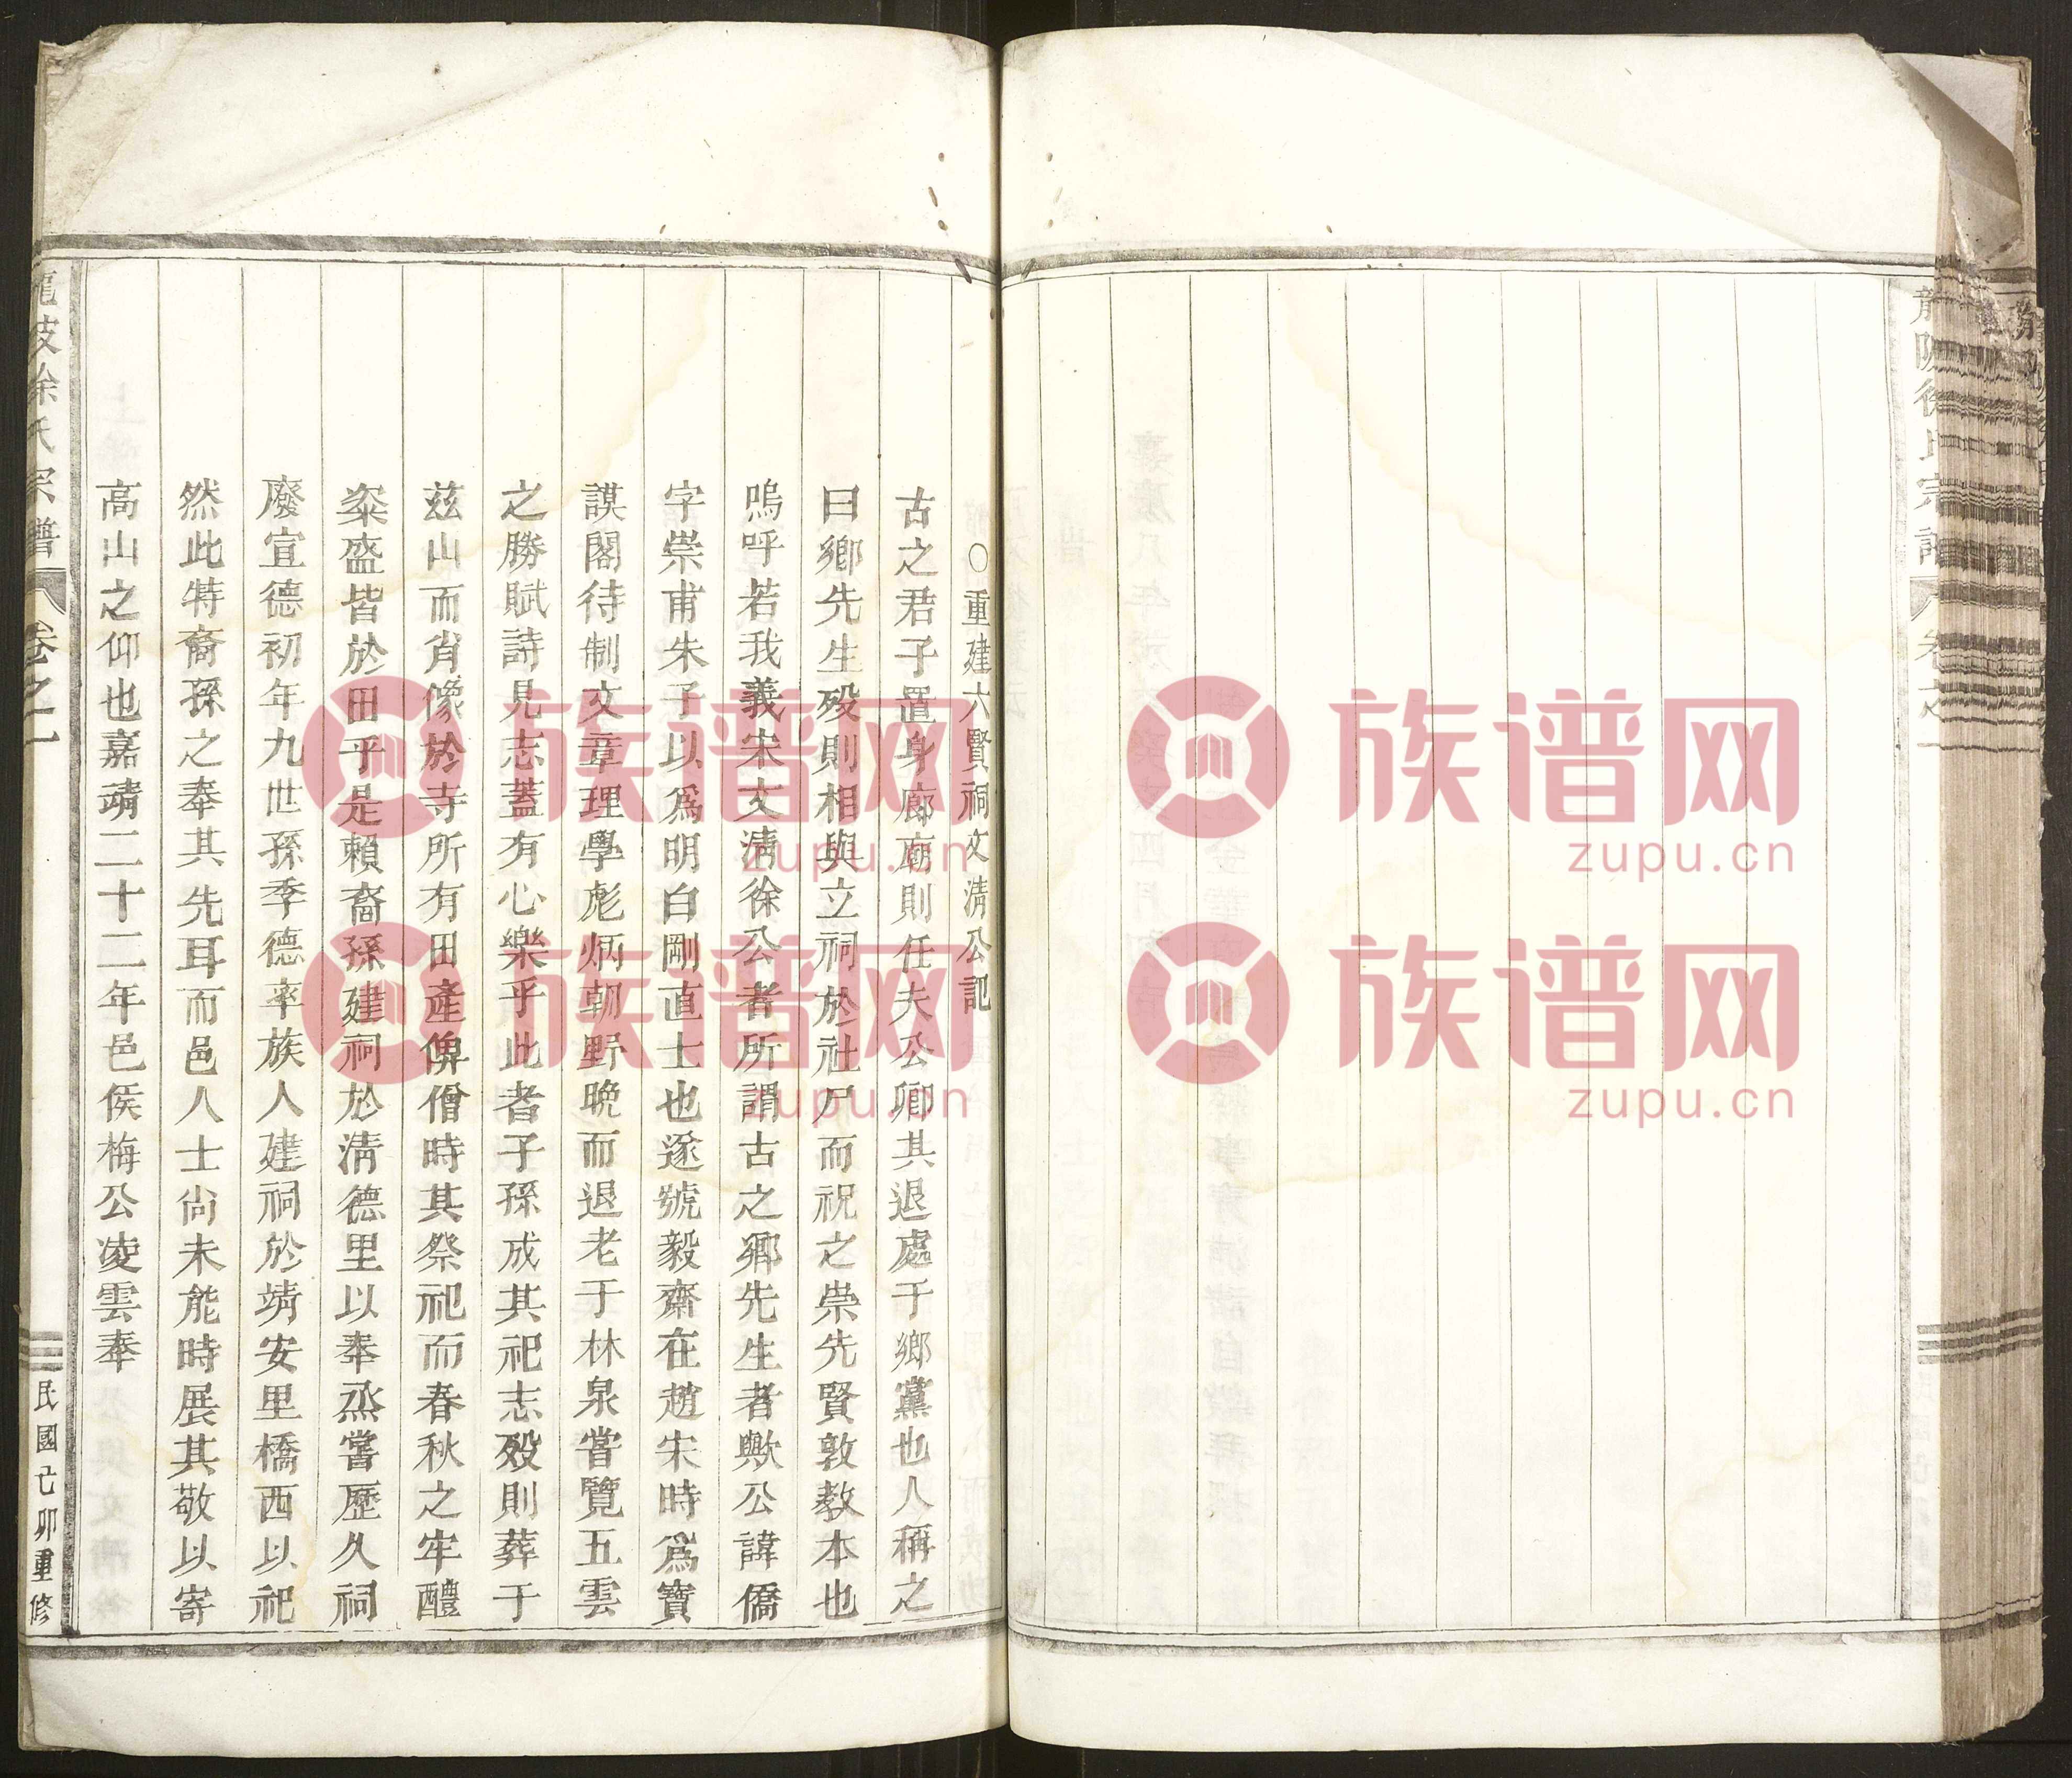 龍陂徐氏宗譜 卷之一
〇重建六賢祠文清公記
古之君子置身廊廟則任夫公卿其退處于鄉黨也人稱之
曰鄉先生歿則相與立祠於社尸而祝之崇先賢敦教本也
嗚呼若我義宋文清徐公者所謂古之鄉先生者歟公諱僑
字崇甫朱子以爲明白剛直士也遂號毅齋在趙宋時爲寶
謨閣待制文章理學彪炳朝野晚而退老于林泉嘗覽五雲
之勝賦詩見志蓋有心樂乎此者子孫成其祀志歿則葬于
茲山而肖像於寺所有田產俾僧時其祭祀而春秋之牢醴
粢盛皆於田乎是賴裔孫建祠於淸德里以奉烝嘗歷久祠
廢宣德初年九世孫季德率族人建祠於靖安里橋西以祀
然此特裔孫之奉其先耳而邑人士尙未能時展其敬以寄
高山之仰也嘉靖二十二年邑侯梅公凌雲奉
龍陂徐氏宗譜 卷之一
民國己卯重修
族谱网
zupu.cn
族谱网
zupu.cn
族谱网
zupu.cn
族谱网
zupu.cn